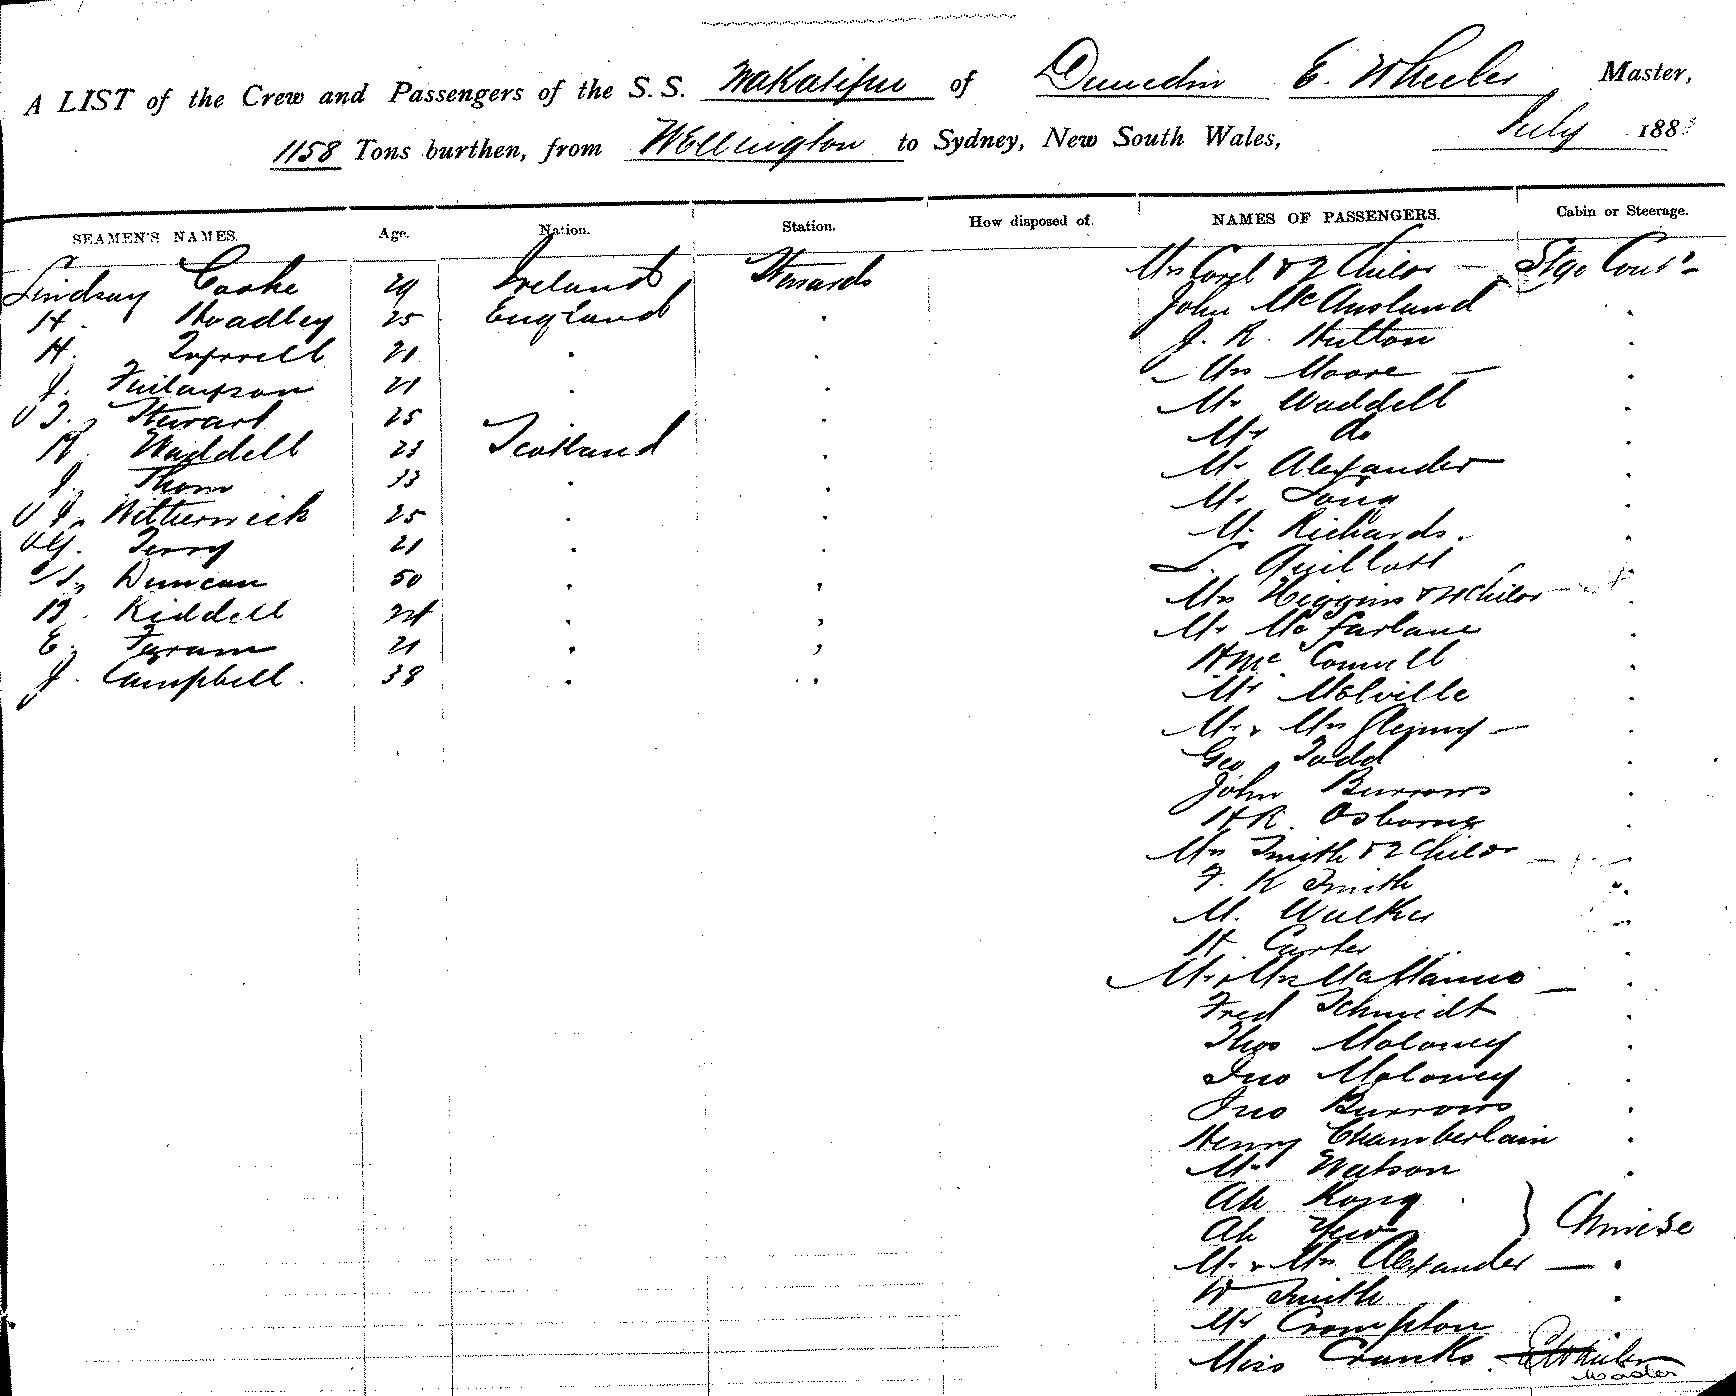 A LIST of the Crew and Passengers of the S.S. Wakatipu of Dunedin E. Wheeler Master,
1158 Tons burthen, from Wellington to Sydney, New South Wales, July 188
SEAMEN'S NAMES. Age. Nation. Station. How disposed of. NAMES OF PASSENGERS. Cabin or Steerage.
Lindsay Cooke 29 Ireland Stewards Mrs & 2 Childn Stge
H. Hoadley 25 England John McAusland
H. Tyrrell 21 J. R. Hutton
J. Finlayson 21 Mrs Moore
J. Stewart 25 Mr Waddell
R. Waddell 23 Scotland Mr do
J. Thom 33 Mr Alexander
J. Witherwick 25 Mr Long
G. Terry 21 Mr Richards.
Duncan 50 L. Quillott
Riddell 24 Mrs Higgins & Childn
E. 21 Mr McFarlane
J. Campbell. 38 H McConnell
Mr Melville
Mr & Mrs
Geo Todd
John Burrows
H R. Osborne
Mrs Smith & 2 Childn
F. K Smith
M. Walker
H Carter
Mr & Mrs McManus
Fred Schmidt
Thos Moloney
Jno Moloney
Jno Burrows
Henry Chamberlain
Mr Watson
Ah Kong
Ah Yew } Chinese
Mr & Mrs Alexander
W Smith
Mr Crompton
Miss Cranks E Wheeler
Master